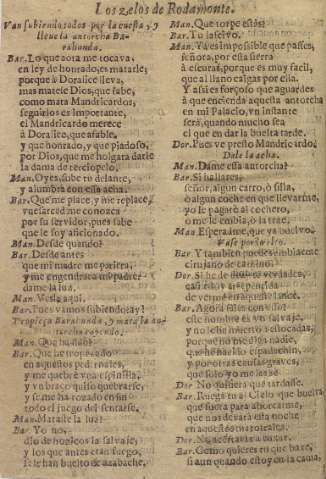 Los zelos de Rodamonte.
Van subiendo todos por la cuesta, y
lleue la antorcha Ba-
rahunda.
Bar. Lo que aora me tocava,
en ley de honrado, es matarle;
porque à Doralice lleva,
mas matele Dios, que sabe,
como mata Mandricardos;
seguirlos es importante,
el Mandricardo merece
à Doralice, que afable,
y que honrado, y que piadoso,
por Dios, que me holgara darle
la dama de terciopelo.
Man. Oyes, sube tu delante,
y alumbra con essa acha.
Bar. Que me place, y me replace,
vuesarced me conozca
por su servidor, pues sabe
que le soy aficionado.
Man. Desde quando?
Bar. Desde antes
que mi madre me pariera,
y me engendrara mi padre:
dame la luz.
Man. Vesla aqui.
Bar. Pues vamos subiendo: ay!
Tropieça Barahunda, y mata la an-
torcha cayendo.
Man. Que has
Bar. Que he tropeçado
en aquestos pedernales,
y me quebrè vna espinilla,
y vn braço quiso quebrarse,
y se me ha rozado en fin
todo el juego del sentarse.
Man. Mataste la luz?
Bar Yo no,
diò de hozicos la salvaje,
y los que antes eran fuego,
se le han buelto de azabache.
Man. Que torpe estàs!
Bar. Tu lo sylvo.
Man. Ya es impossible que passes,
señora, por esta sierra
à escuras, porque es muy facil,
que al llano caygas por ella.
Y assi es forçoso que aguardes
à que encienda aquesta antorcha
en mi Palacio, vn instante
serà, quando mucho sea
el que en dar la buelta tarde.
Dor. Pues ve presto Mandricardo.
Dale la acha.
Man. Dame essa antorcha?
Bar. Si hallares,
señor, algun carro, ò silla,
o algun coche en que llevarme,
yo le pagarè al cochero,
ò me le embia, ò la trae.
Man. Esperadme, que ya buelvo.
Vase por vn lado.
Bar. Y tambien puedes embiarme
cirujano de camino?
Dor. Si he de dezir verdades,
casi estoy arrepentida
de verme en aqueste lance.
Bar. Agora bien
este hombre es vn salvaje,
y no le he muerto à estocadas,
porque no me diga nadie,
que me hablò
y por otras causas graves,
que solo yo me las sè.
Dor. No quisiera que tardasse.
Bar. Plegue al Cielo que buelva
que fuera para ahorcarme,
que nos dexara esta noche
en aquestos matorrales.
Dor. No
Bar. Como quieres en que baxe,
si aun quando estoy en la cama,